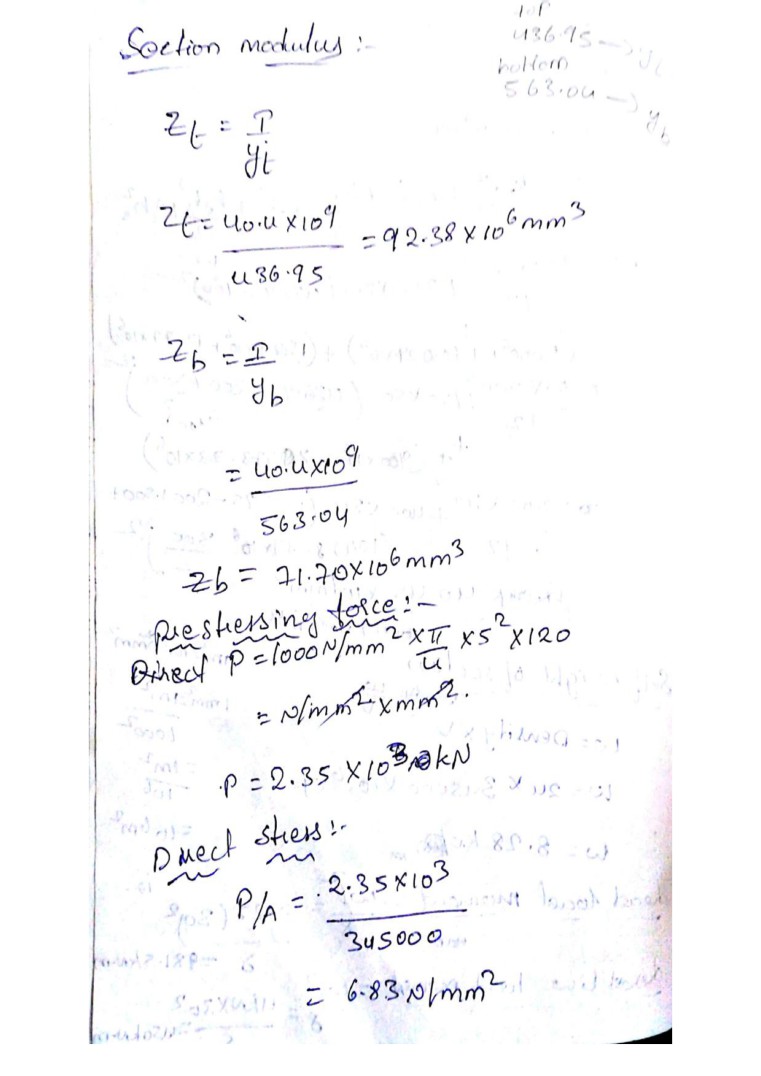 Section modulus :-
top
436.95 → yt
bottom
563.04 → yb
Zt = I / yt
Zt = 40.4 × 10⁹ / 436.95 = 92.38 × 10⁶ mm³
Zb = I / yb
= 40.4 × 10⁹ / 563.04
Zb = 71.70 × 10⁶ mm³
Prestressing force :-
Direct P = 1000 N/mm² × π/4 × 5² × 120
= N/mm² × mm².
P = 2.35 × 10³ kN
Direct stress :-
P/A = 2.35 × 10³ / 345000
= 6.83 N/mm²